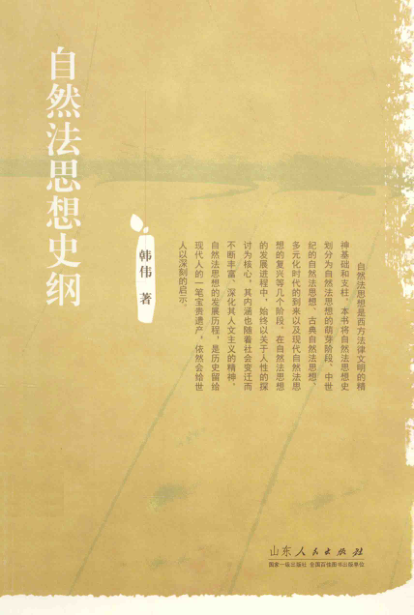 自然法思想史纲
韩伟 著
自然法思想是西方法律文明的精
神基础和支柱。本书将自然法思想史
划分为自然法思想的萌芽阶段、中世
纪的自然法思想、古典自然法思想、
多元化时代的到来以及现代自然法思
想的复兴等几个阶段。在自然法思想
的发展进程中，始终以关于人性的探
讨为核心，其内涵也随着社会变迁而
不断丰富、深化其人文主义的精神。
自然法思想的发展历程，是历史留给
现代人的一笔宝贵遗产，依然会给世
人以深刻的启示。
山东人民出版社
国家一级出版社 全国百佳图书出版单位